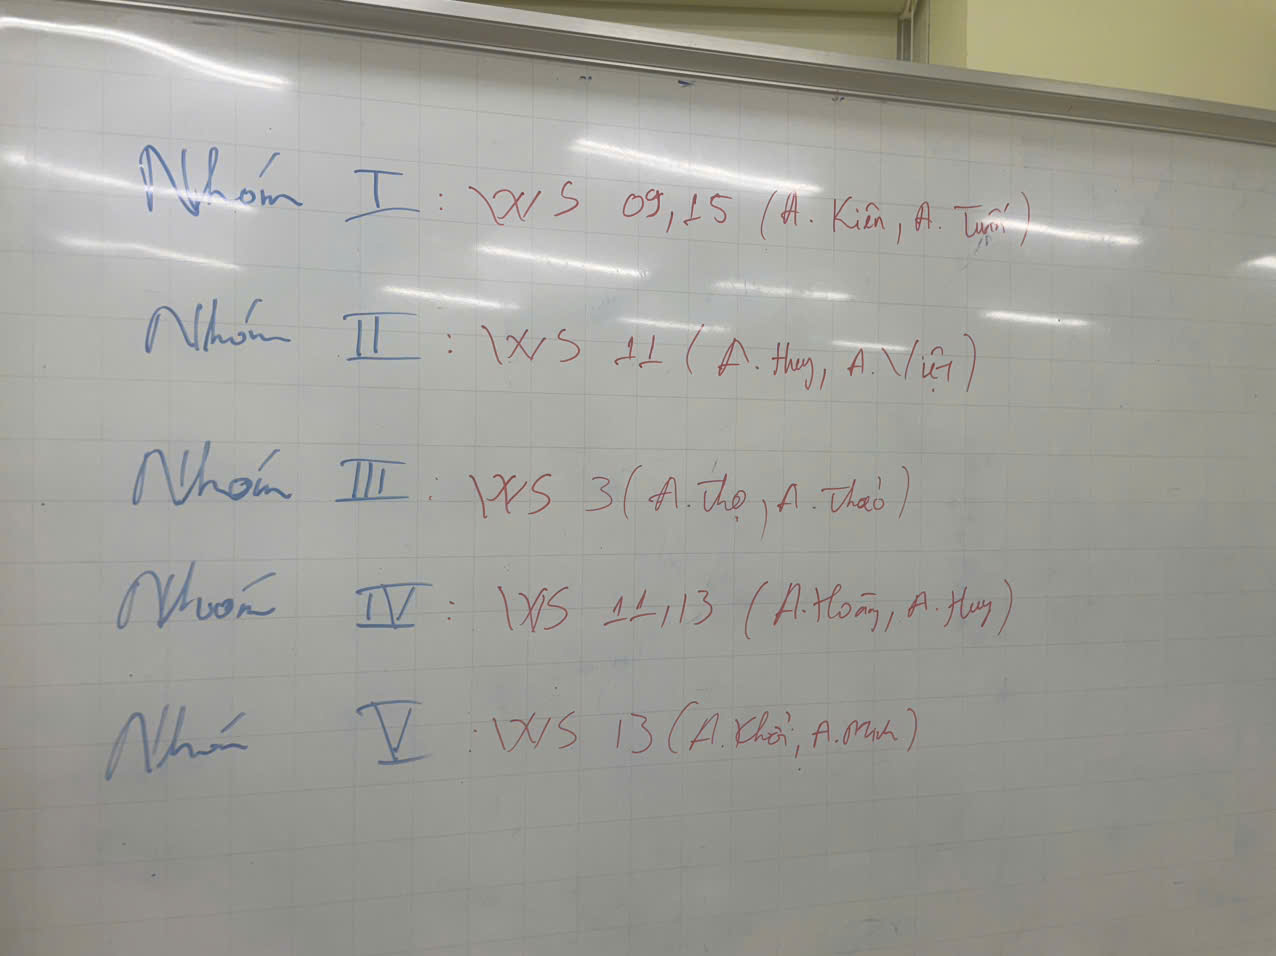 Nhóm I : WS 09,15 (A. Kiên, A. Tuấn)
Nhóm II : WS 11 (A. Huy, A. Việt)
Nhóm III : WS 3 (A. Thọ, A. Thảo)
Nhóm IV : WS 11,13 (A. Hoàng, A. Huy)
Nhóm V : WS 13 (A. Khôi, A. Minh)